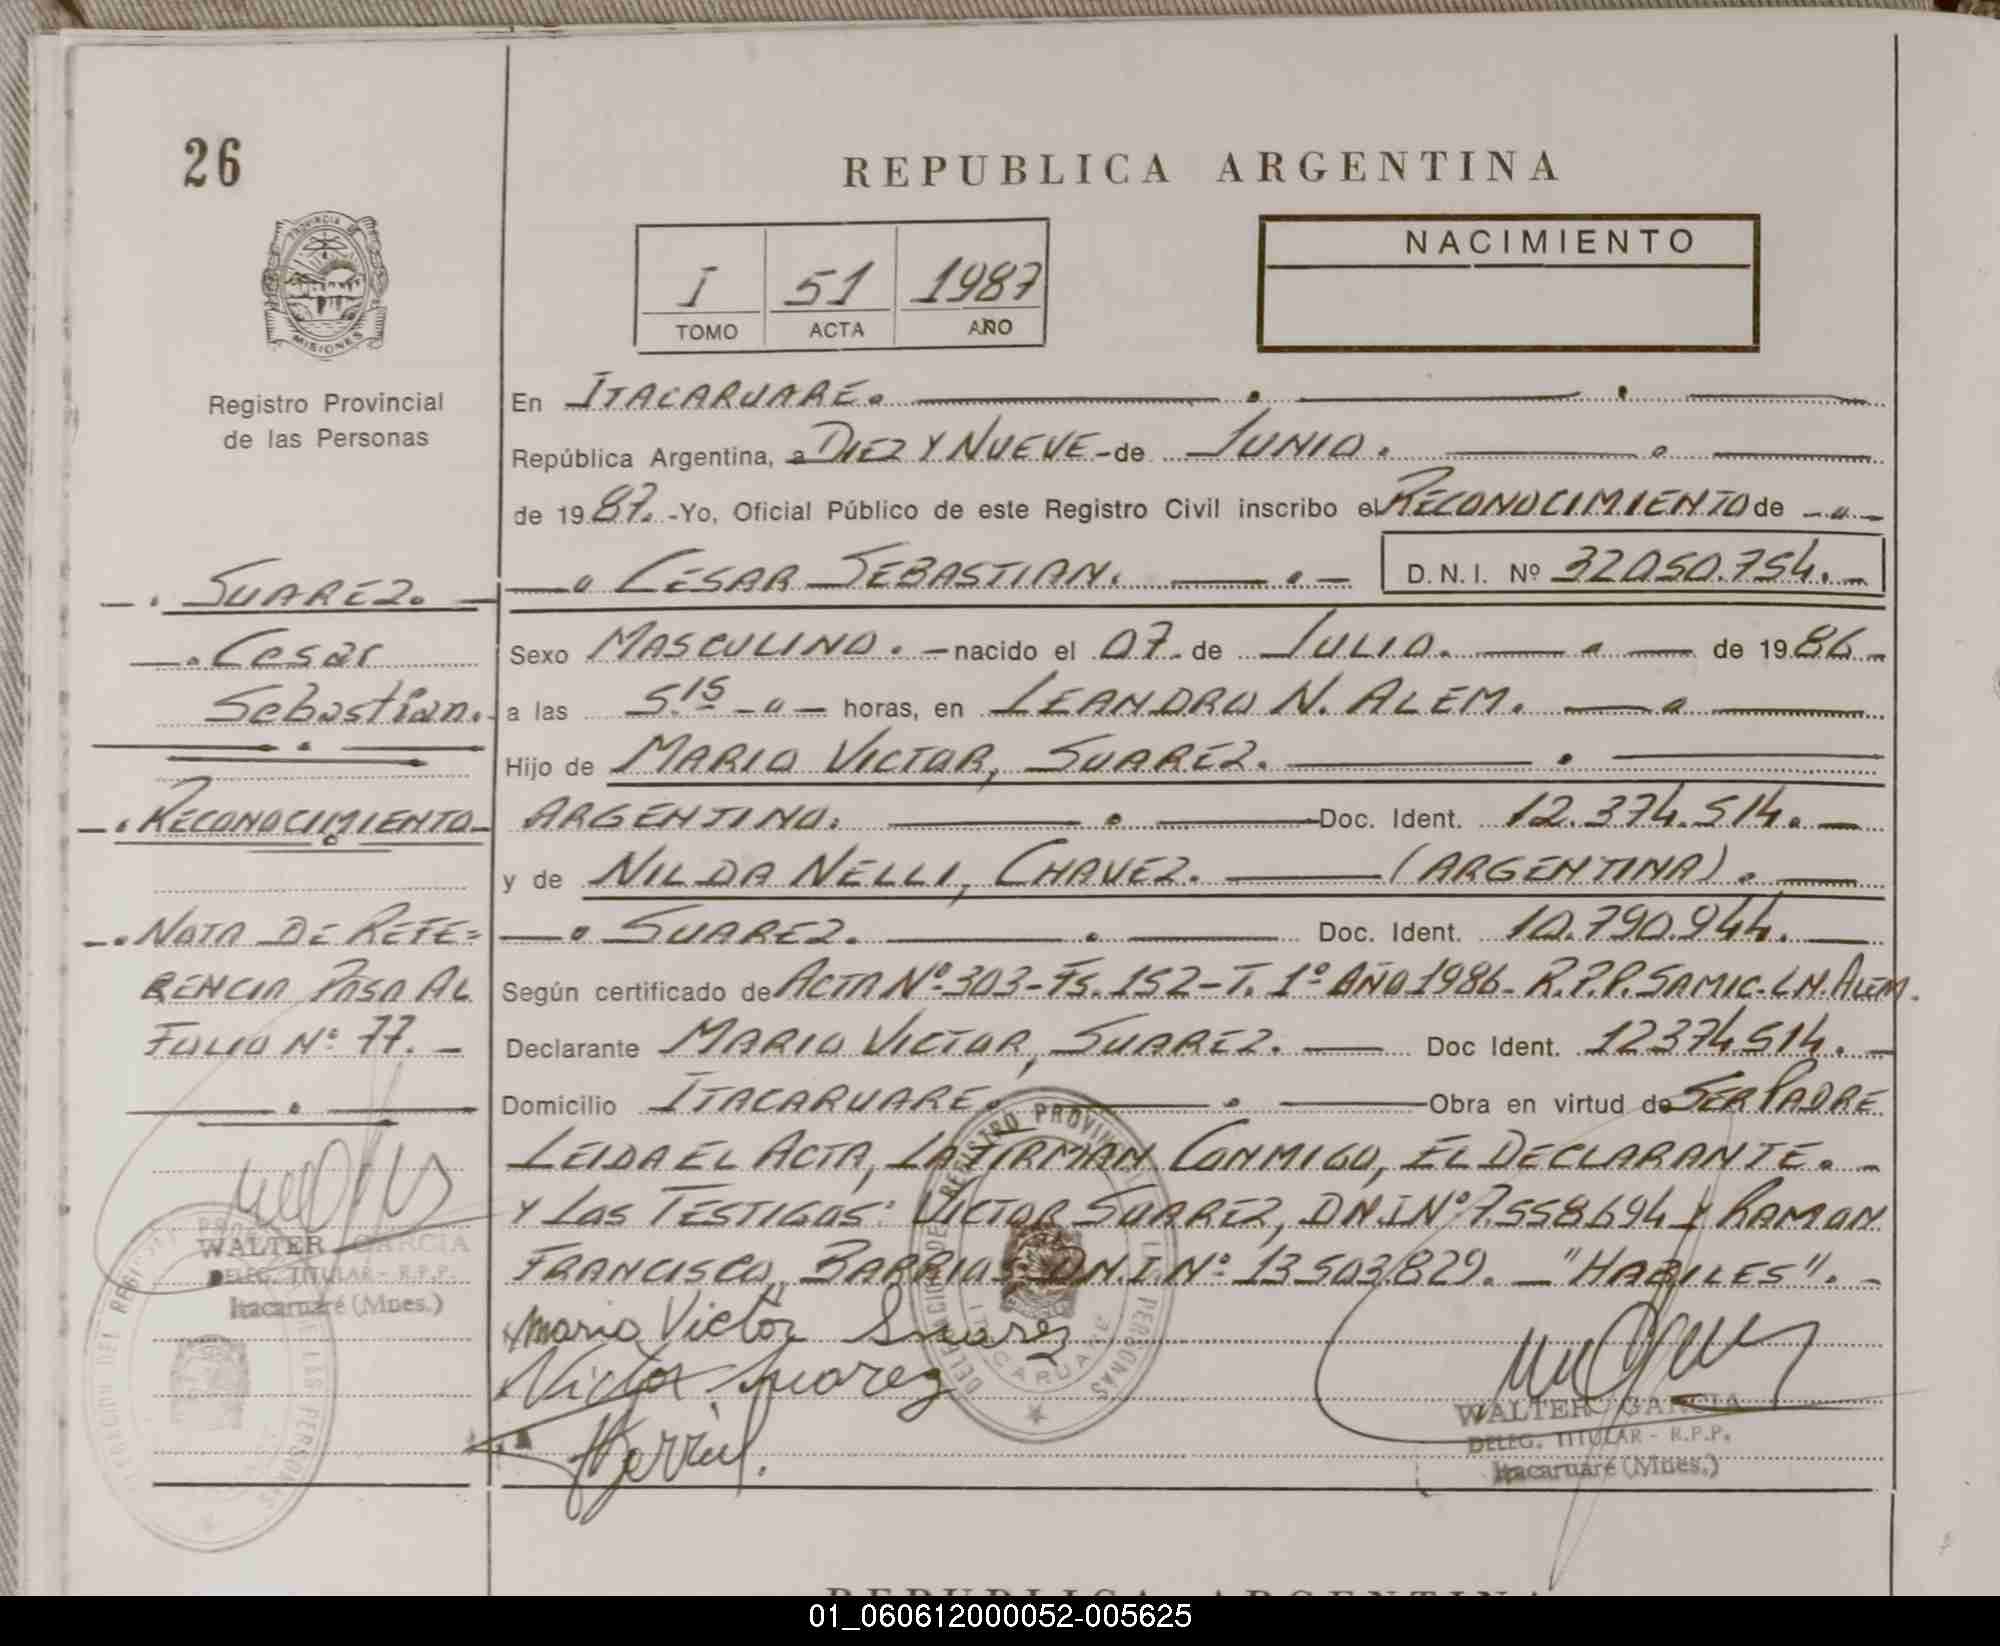 26
REPUBLICA ARGENTINA
PROVINCIA DE
MISIONES
Registro Provincial
de las Personas
I 51 1987
TOMO ACTA AÑO
NACIMIENTO
En ITACARUARE.
República Argentina, a DIEZ Y NUEVE - de JUNIO.
de 1987. - Yo, Oficial Público de este Registro Civil inscribo el RECONOCIMIENTO de
CESAR SEBASTIAN. D.N.I. Nº 32050.754.
Sexo MASCULINO. - nacido el 07 de JULIO. de 1986
a las 5.15 horas, en LEANDRO N. ALEM.
Hijo de MARIO VICTOR, SUAREZ.
ARGENTINO. Doc. Ident. 12.374.514.
y de NILDA NELLI, CHAVEZ. (ARGENTINA).
SUAREZ. Doc. Ident. 10.790.944.
Según certificado de ACTA Nº 303-Fs. 152-T. 1º AÑO 1986- R.P.P. SAMIC-L.N. ALEM.
Declarante MARIO VICTOR, SUAREZ. Doc Ident. 12374.514.
Domicilio ITACARUARE. Obra en virtud de SER PADRE
LEIDA EL ACTA, LA FIRMAN CONMIGO, EL DECLARANTE.
Y LOS TESTIGOS: VICTOR SUAREZ, D.N.I Nº 7.558694 Y RAMON
FRANCISCO, BARRIOS D.N.I. Nº 13503829. "HABILES".
Mario Victor Suarez
Victor Suarez
WALTER GARCIA
DELEG. TITULAR - R.P.P.
Itacaruaré (Mnes.)
SUAREZ.
Cesar
Sebastian.
RECONOCIMIENTO
NOTA DE REFE=
RENCIA PASA AL
FOLIO Nº 77.
WALTER GARCIA
DELEG. TITULAR - R.P.P.
Itacaruaré (Mnes.)
REGISTRO PROVINCIAL DE LAS PERSONAS
DELEGACION
ITACARUARE
REPUBLICA ARGENTINA
01_060612000052-005625